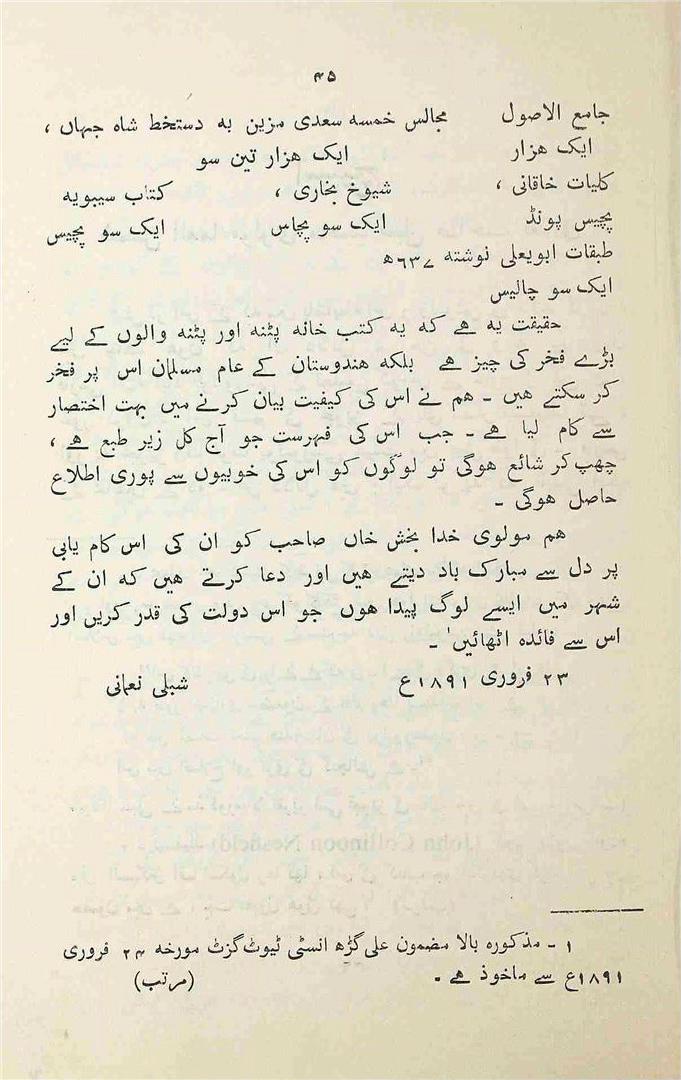 ۴۵
جامع الاصول    مجالس خمسہ سعدی مزین بہ دستخط شاہ جہاں ،
ایک ہزار    ایک ہزار تین سو
کلیات خاقانی ،    شیوخ بخاری ،    کتاب سیبویہ
پچیس پونڈ    ایک سو پچاس    ایک سو پچیس
طبقات ابویعلی نوشتہ ۶۳۷ھ
ایک سو چالیس
حقیقت یہ ہے کہ یہ کتب خانہ پٹنہ اور پٹنہ والوں کے لیے
بڑے فخر کی چیز ہے بلکہ ہندوستان کے عام مسلمان اس پر فخر
کر سکتے ہیں ۔ ہم نے اس کی کیفیت بیان کرنے میں بہت اختصار
سے کام لیا ہے ۔ جب اس کی فہرست جو آج کل زیر طبع ہے ،
چھپ کر شائع ہوگی تو لوگوں کو اس کی خوبیوں سے پوری اطلاع
حاصل ہوگی ۔
ہم مولوی خدا بخش خاں صاحب کو ان کی اس کام یابی
پر دل سے مبارک باد دیتے ہیں اور دعا کرتے ہیں کہ ان کے
شہر میں ایسے لوگ پیدا ہوں جو اس دولت کی قدر کریں اور
اس سے فائدہ اٹھائیں' ۔
۲۳ فروری ۱۸۹۱ع    شبلی نعمانی
۱ ۔ مذکورہ بالا مضمون علی گڑھ انسٹی ٹیوٹ گزٹ مورخہ ۲۴ فروری
۱۸۹۱ع سے ماخوذ ہے ۔    (مرتب)